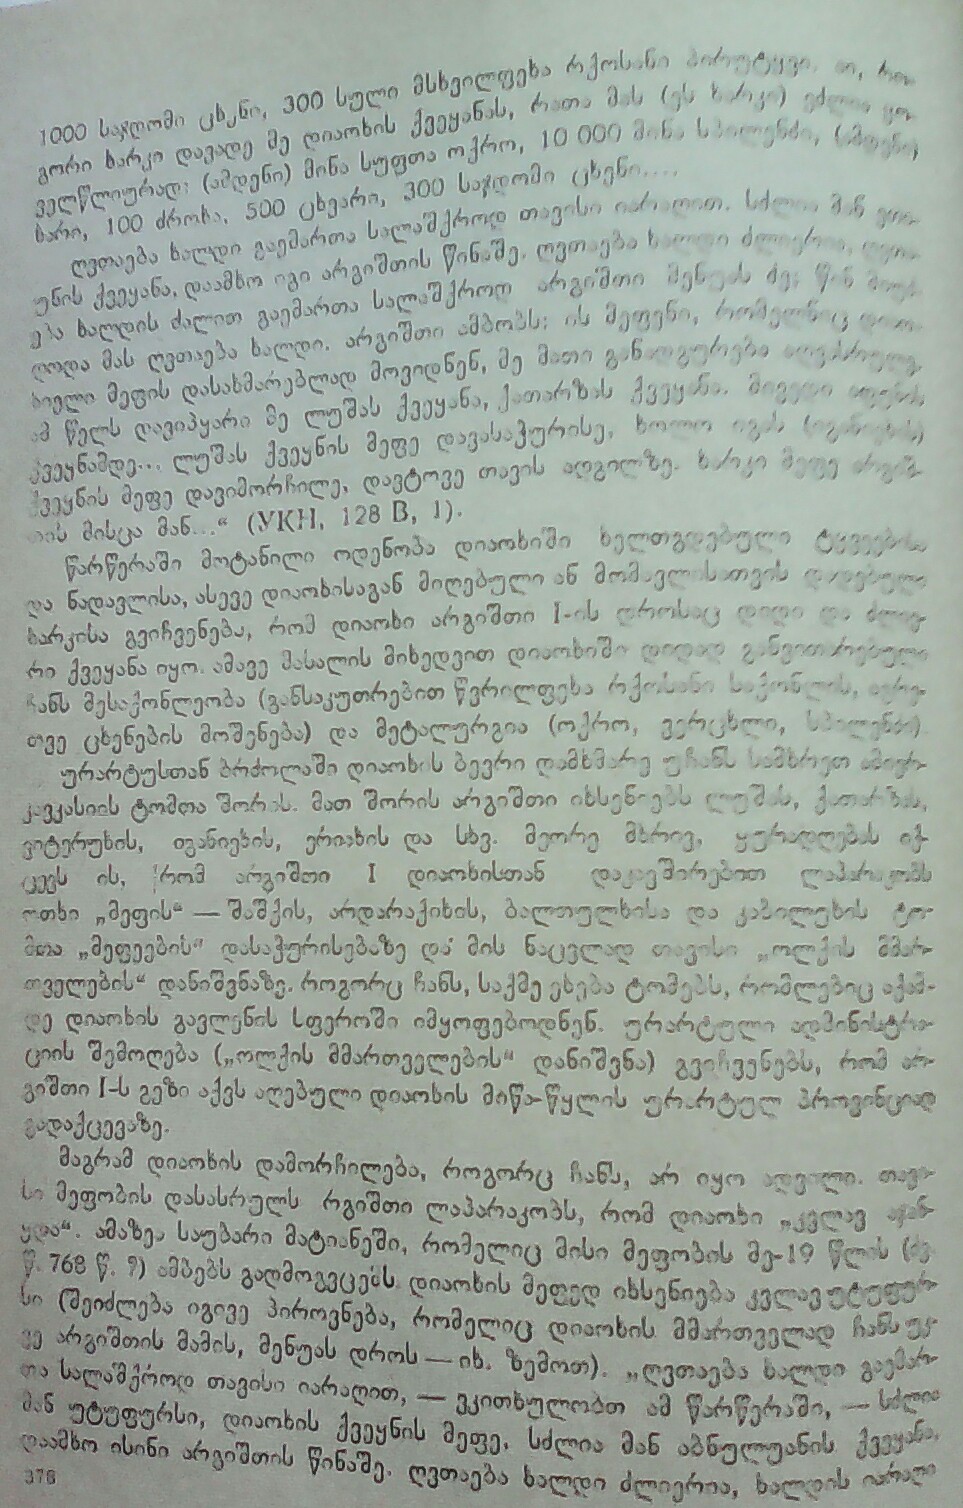 1000 საჯდომი ცხენი, 300 სული მსხვილფეხა რქოსანი პირუტყვი.
გორი ხარკი დავადე მე დიაოხის ქვეყანას, რათა მას (ეს ხარკი) ეძლია ყო-
ველწლიურად: (ამდენი) მინა სუფთა ოქრო, 10 000 მინა სპილენძი, (ამდენი)
ხარი, 100 ძროხა, 500 ცხვარი, 300 საჯდომი ცხენი....
ღვთაება ხალდი გაემართა სალაშქროდ თავისი იარაღით. სძლია მან
უნის ქვეყანა, დაამხო იგი არგიშთის წინაშე. ღვთაება ხალდი ძლიერია, ღვთა-
ება ხალდის ძალით გაემართა სალაშქროდ არგიშთი მენუას ძე; წინ მიუძ-
ღოდა მას ღვთაება ხალდი. არგიშთი ამბობს: ის მეფენი, რომელნიც
მეფის დასახმარებლად მოვიდნენ, მე მათი განადგურება აღვასრულე,
ამ წელს დავიპყარი მე ლუშას ქვეყანა, ქათარზას ქვეყანა. მივედი
ქვეყნამდე... ლუშას ქვეყნის მეფე დავასაჭურისე, ხოლო იგას (იგანიეხის)
ქვეყნის მეფე დავიმორჩილე, დავტოვე თავის ადგილზე. ხარკი მეფე არგიშ-
თის მისცა მან...“ (УКН, 128 B, 1).
წარწერაში მოტანილი ოდენობა დიაოხიში ხელთგდებული ტყვეებისა
და ნადავლისა, ასევე დიაოხისაგან მიღებული ან მომავლისათვის დადებული
ხარკისა გვიჩვენება, რომ დიაოხი არგიშთი I-ის დროსაც დიდი და ძლიე-
რი ქვეყანა იყო. ამავე მასალის მიხედვით დიაოხიში დიდად განვითარებული
ჩანს მესაქონლეობა (განსაკუთრებით წვრილფეხა რქოსანი საქონლის, აგრე-
თვე ცხენების მოშენება) და მეტალურგია (ოქრო, ვერცხლი, სპილენძი).
ურარტუსთან ბრძოლაში დიაოხს ბევრი დამხმარე უჩანს სამხრეთ ამიერ-
კავკასიის ტომთა შორის. მათ შორის არგიშთი იხსენიებს ლუშას, ქათარზას,
ვიტერუხის, იგანიეხის, ერიახის და სხვ. მეორე მხრივ, ყურადღებას იქ-
ცევს ის, რომ არგიშთი I დიაოხისთან დაკავშირებით ლაპარაკობს
ოთხი „მეფის“ — შაშქის, არდარაქიხის, ბალთულხისა და კაბილუხის ტო-
მთა „მეფეების“ დასაჭურისებაზე და მის ნაცვლად თავისი „ოლქის მმარ-
თველების“ დანიშვნაზე. როგორც ჩანს, საქმე ეხება ტომებს, რომლებიც აქამ-
დე დიაოხის გავლენის სფეროში იმყოფებოდნენ. ურარტული ადმინისტრა-
ციის შემოღება („ოლქის მმართველების“ დანიშვნა) გვიჩვენებს, რომ არ-
გიშთი I-ს გეზი აქვს აღებული დიაოხის მიწა-წყლის ურარტულ პროვინციად
გადაქცევაზე.
მაგრამ დიაოხის დამორჩილება, როგორც ჩანს, არ იყო ადვილი. თავი-
სი მეფობის დასასრულს რგიშთი ლაპარაკობს, რომ დიაოხი „კვლავ აჯან-
ყდა“. ამაზეა საუბარი მატიანეში, რომელიც მისი მეფობის მე-19 წლის (ძვ.
წ. 768 წ. ?) ამბებს გადმოგვცემს. დიაოხის მეფედ იხსენიება კვლავ უტუფურ-
სი (შეიძლება იგივე პიროვნება, რომელიც დიაოხის მმართველად ჩანს უკ-
ვე არგიშთის მამის, მენუას დროს — იხ. ზემოთ). „ღვთაება ხალდი გაემარ-
თა სალაშქროდ თავისი იარაღით, — ვკითხულობთ ამ წარწერაში, — სძლია
მან უტუფურსი, დიაოხის ქვეყნის მეფე. სძლია მან აბნულუანის ქვეყანა,
დაამხო ისინი არგიშთის წინაშე. ღვთაება ხალდი ძლიერია, ხალდის იარაღი
378